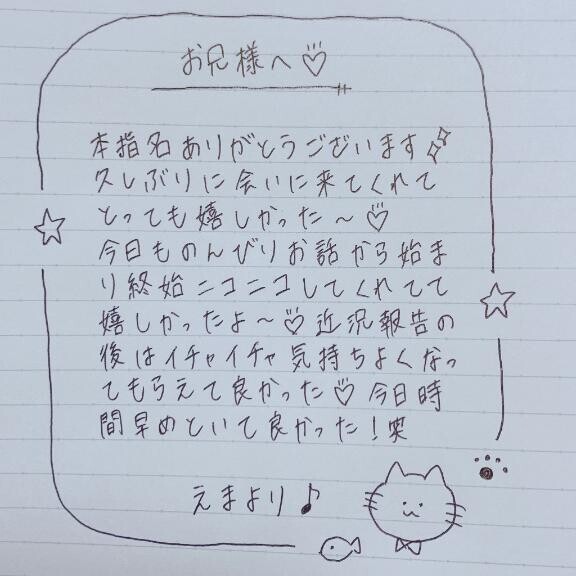 お兄様へ♡
本指名ありがとうございます✨
久しぶりに会いに来てくれて
とっても嬉しかった〜♡
今日ものんびりお話から始ま
り終始ニコニコしてくれてて
嬉しかったよ〜♡近況報告の
後はイチャイチャ気持ちよくなっ
てもらえて良かった♡今日時
間早めといて良かった!笑
えまより♪